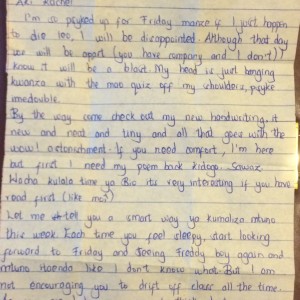 Aki Rachel
I'm so psyked up for Friday mance if I just happen
to die leo, I will be disappointed. Although that day
we will be apart (you have company and I don't)) I
know it will be a blast. My head is just banging
kwanza with the mob quiz off my shoulders, psyke
medouble.
By the way come check out my new handwriting. It
new and neat and tiny and all that goes with the
wow! astonishment. If you need comfort, I'm here
but first I need my poem back kidogo. Sawaz
Wacha kulala time ya Bio its very interesting if you have
read first (like me)
Let me tell you a smart way ya kumaliza mtuno
this week. Each time you feel sleepy, start looking
forward to Friday and seeing Freddy boy again and
mtuno itaenda like I don't know what. But I am
not encouraging you to drift off class all the time.